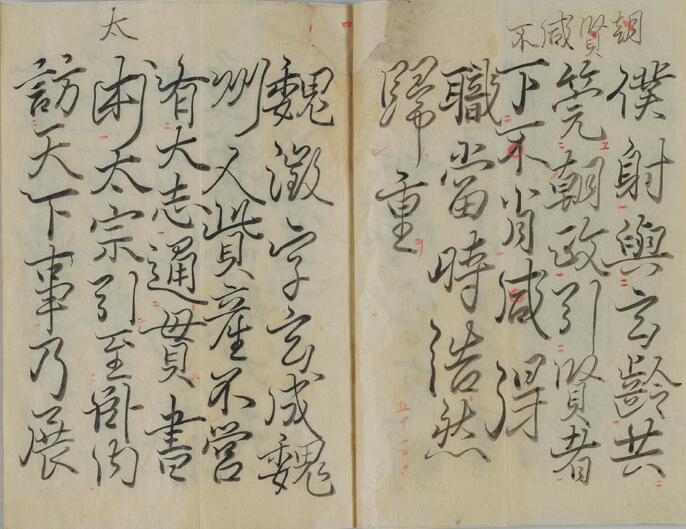 朝賢咸不
僕射與玄齡共
筦朝政引賢者
下不肖咸得
職當時浩然
歸重
太
魏徵字玄成魏
州人貲產不營
有大志通貫書
術太宗引至臥內
訪天下事乃展